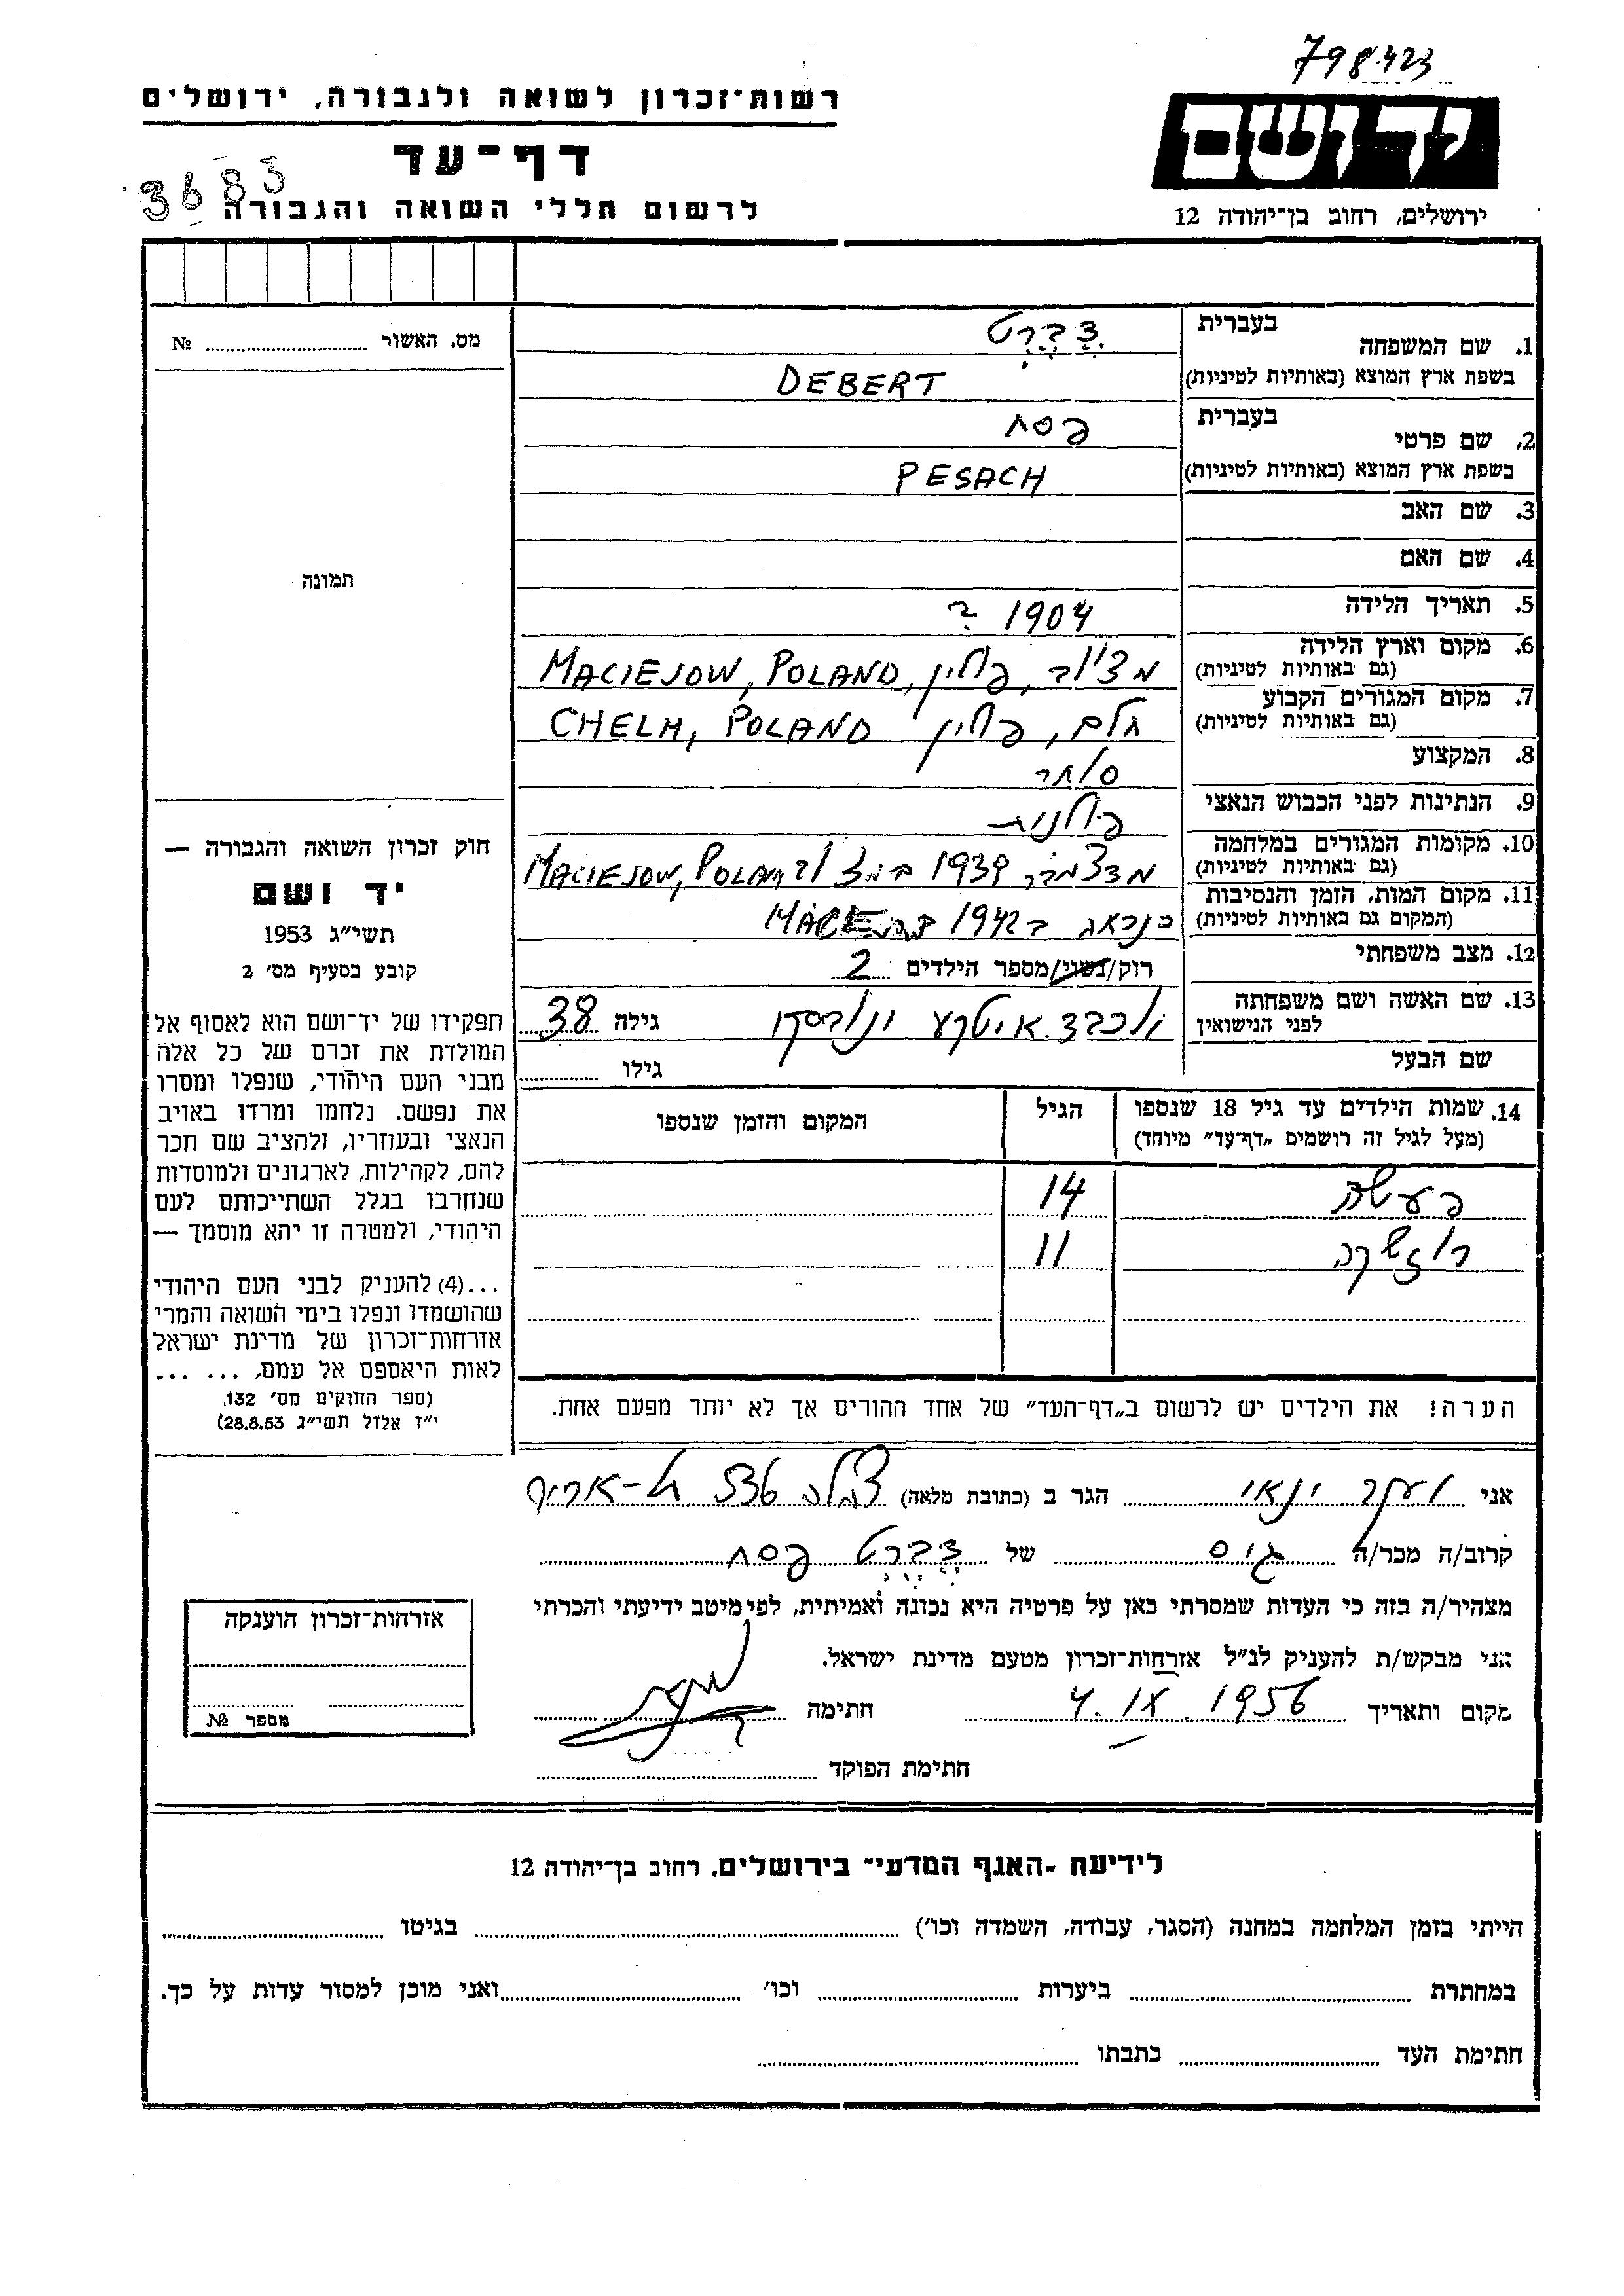 798423
רשות־זכרון לשואה ולגבורה, ירושלים
ידושם
דף־עד
3683
לרשום חללי השואה והגבורה
ירושלים, רחוב בן־יהודה 12
1. שם המשפחה
בעברית
דֶבֶּרְט
בשפת ארץ המוצא (באותיות לטיניות)
DEBERT
2. שם פרטי
בעברית
פסח
בשפת ארץ המוצא (באותיות לטיניות)
PESACH
3. שם האב
4. שם האם
5. תאריך הלידה
1904 ?
6. מקום וארץ הלידה
(גם באותיות לטיניות)
מציוב, פולין, MACIEJOW, POLAND
7. מקום המגורים הקבוע
(גם באותיות לטיניות)
חלם, פולין CHELM, POLAND
8. המקצוע
סוחר
9. הנתינות לפני הכבוש הנאצי
פולנית
10. מקומות המגורים במלחמה
(גם באותיות לטיניות)
מדצמבר 1939 MACIEJOW, POLAND
11. מקום המות, הזמן והנסיבות
(המקום גם באותיות לטיניות)
כנראה ב 1942
12. מצב משפחתי
רוק/נשוי/מספר הילדים 2
13. שם האשה ושם משפחתה
לפני הנישואין
יוכבד איטקע
גילה 38
שם הבעל
גילו
14. שמות הילדים עד גיל 18 שנספו
(מעל לגיל זה רושמים „דף־עד" מיוחד)
הגיל
המקום והזמן שנספו
14
11
הערה! את הילדים יש לרשום ב„דף־העד" של אחד ההורים אך לא יותר מפעם אחת.
מס. האשור № 
תמונה
חוק זכרון השואה והגבורה —
יד ושם
תשי״ג 1953
קובע בסעיף מס׳ 2
תפקידו של יד־ושם הוא לאסוף אל
המולדת את זכרם של כל אלה
מבני העם היהודי, שנפלו ומסרו
את נפשם. נלחמו ומרדו באויב
הנאצי ובעוזריו, ולהציב שם וזכר
להם, לקהילות, לארגונים ולמוסדות
שנחרבו בגלל השתייכותם לעם
היהודי, ולמטרה זו יהא מוסמך —
...(4) להעניק לבני העם היהודי
שהושמדו ונפלו בימי השואה והמרי
אזרחות־זכרון של מדינת ישראל
לאות היאספם אל עמם, ... ...
(ספר החוקים מס׳ 132,
י״ז אלול תשי״ג 28.8.53)
אני יעקב ינאי הגר ב (כתובת מלאה) תל-אביב
קרוב/ה מכר/ה גיס של דֶבֶּרְט פסח
מצהיר/ה בזה כי העדות שמסרתי כאן על פרטיה היא נכונה ואמיתית, לפי מיטב ידיעתי והכרתי
אני מבקש/ת להעניק לנ״ל אזרחות־זכרון מטעם מדינת ישראל.
מקום ותאריך 4. IX. 1956 חתימה
חתימת הפוקד
אזרחות־זכרון הוענקה
מספר №
לידיעת -האגף המדעי־ בירושלים. רחוב בן־יהודה 12
הייתי בזמן המלחמה במחנה (הסגר, עבודה, השמדה וכו׳) בגיטו
במחתרת ביערות וכו׳ ואני מוכן למסור עדות על כך.
חתימת העד כתבתו